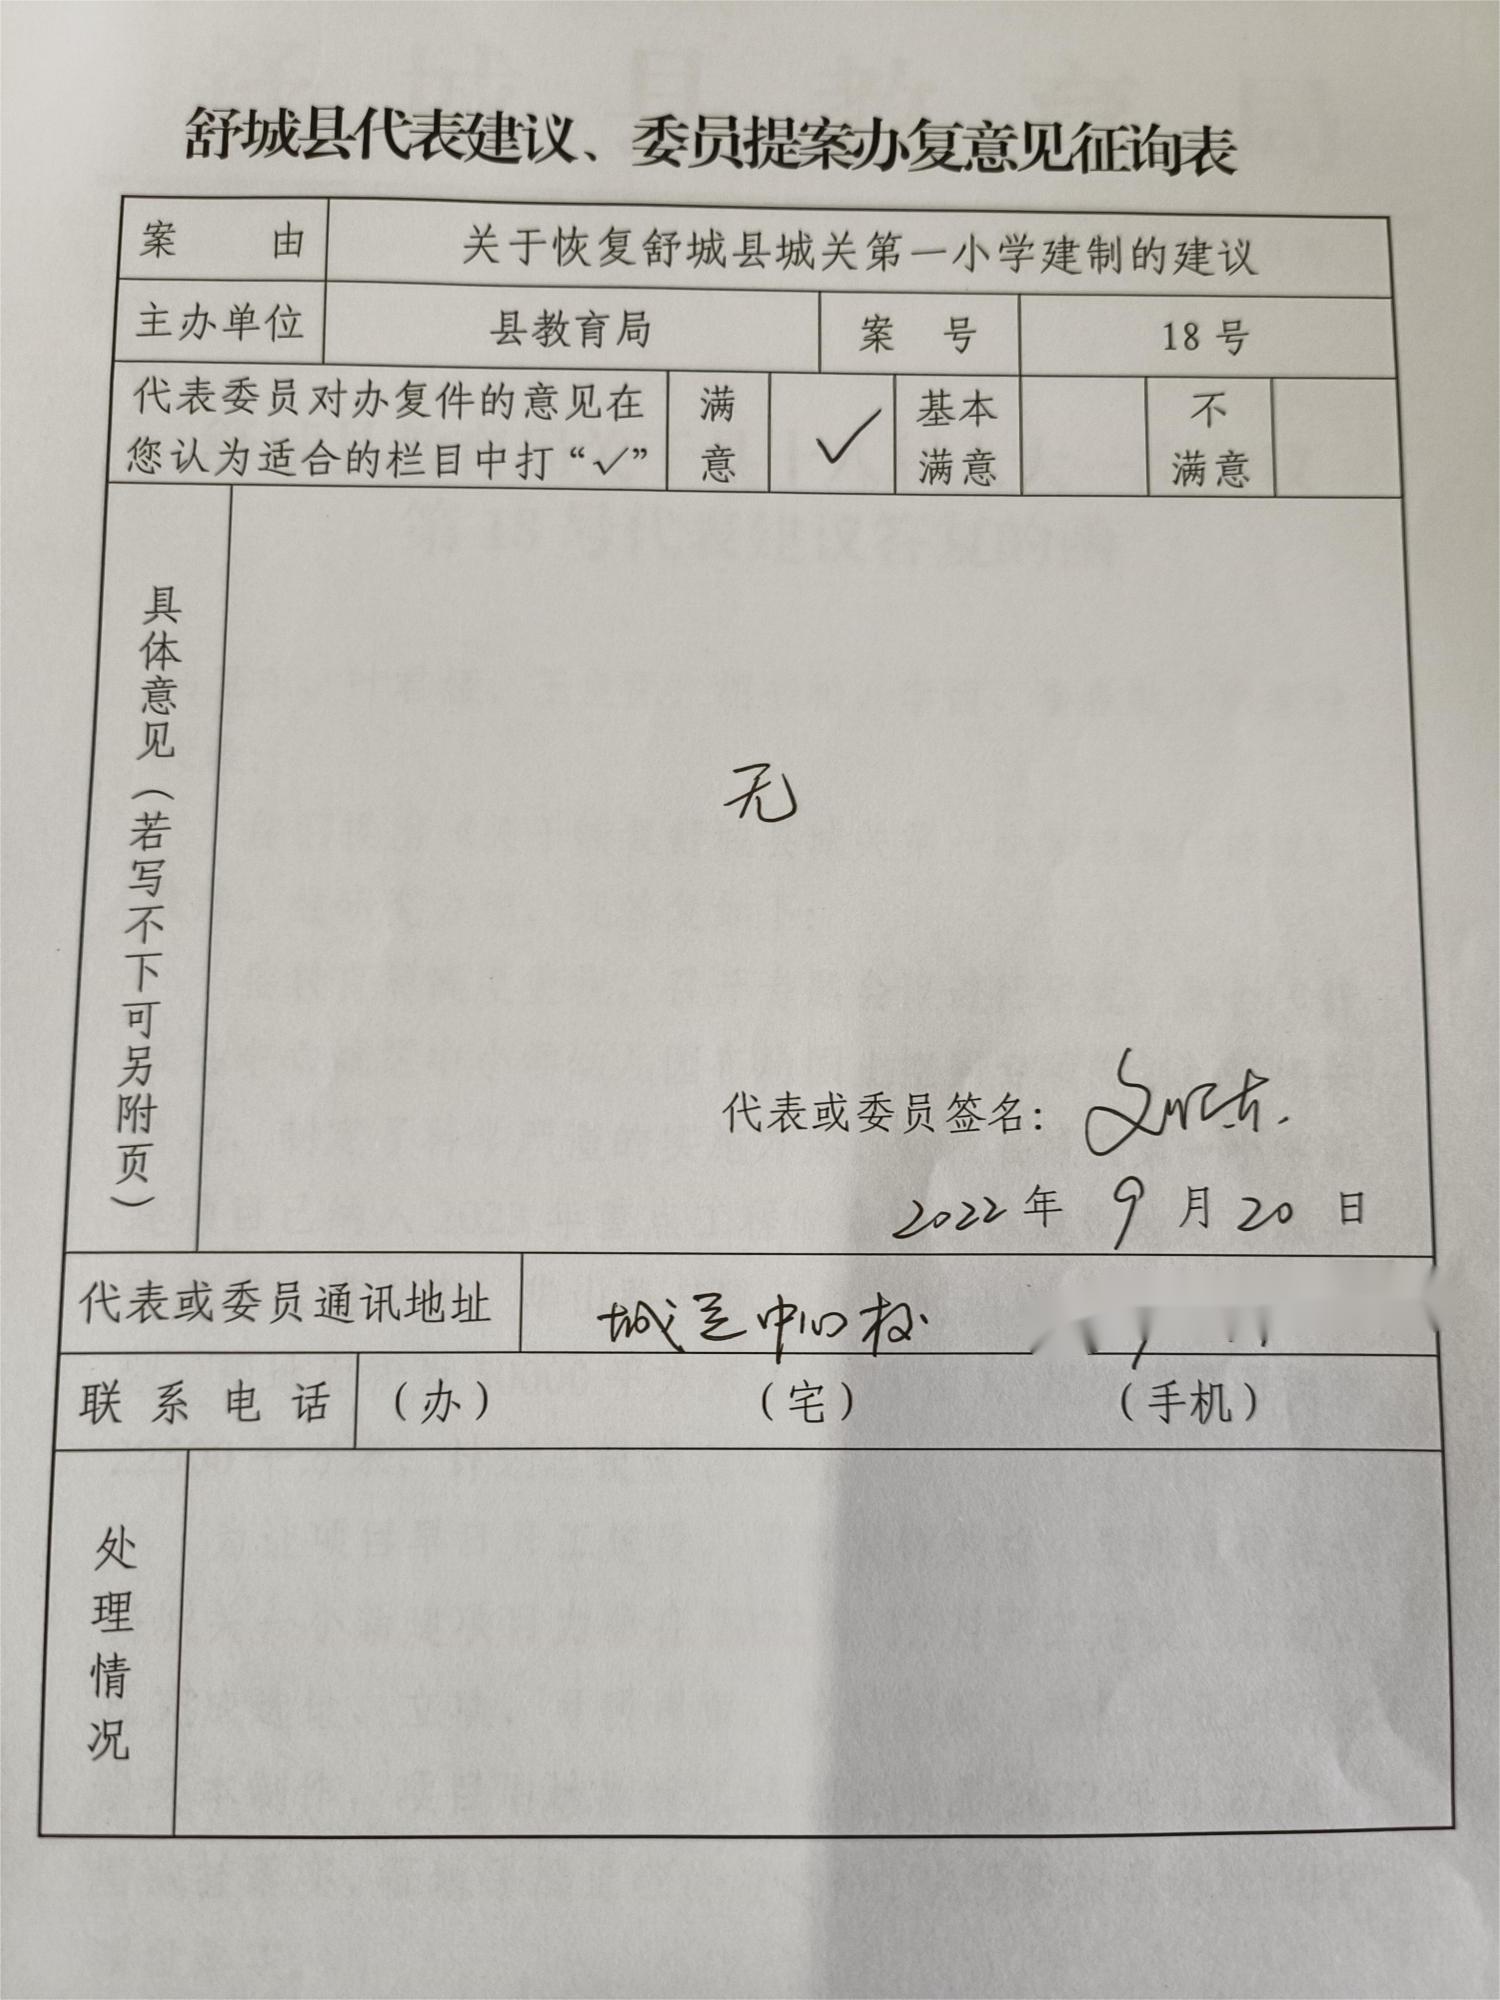 舒城县代表建议、委员提案办复意见征询表
案由 关于恢复舒城县城关第一小学建制的建议
主办单位 县教育局 案号 18号
代表委员对办复件的意见在您认为适合的栏目中打“✓” 满意 ✓ 基本满意 不满意
具体意见（若写不下可另附页）
无
代表或委员签名：
2022年9月20日
代表或委员通讯地址 城关中心校
联系电话 （办） （宅） （手机）
处理情况